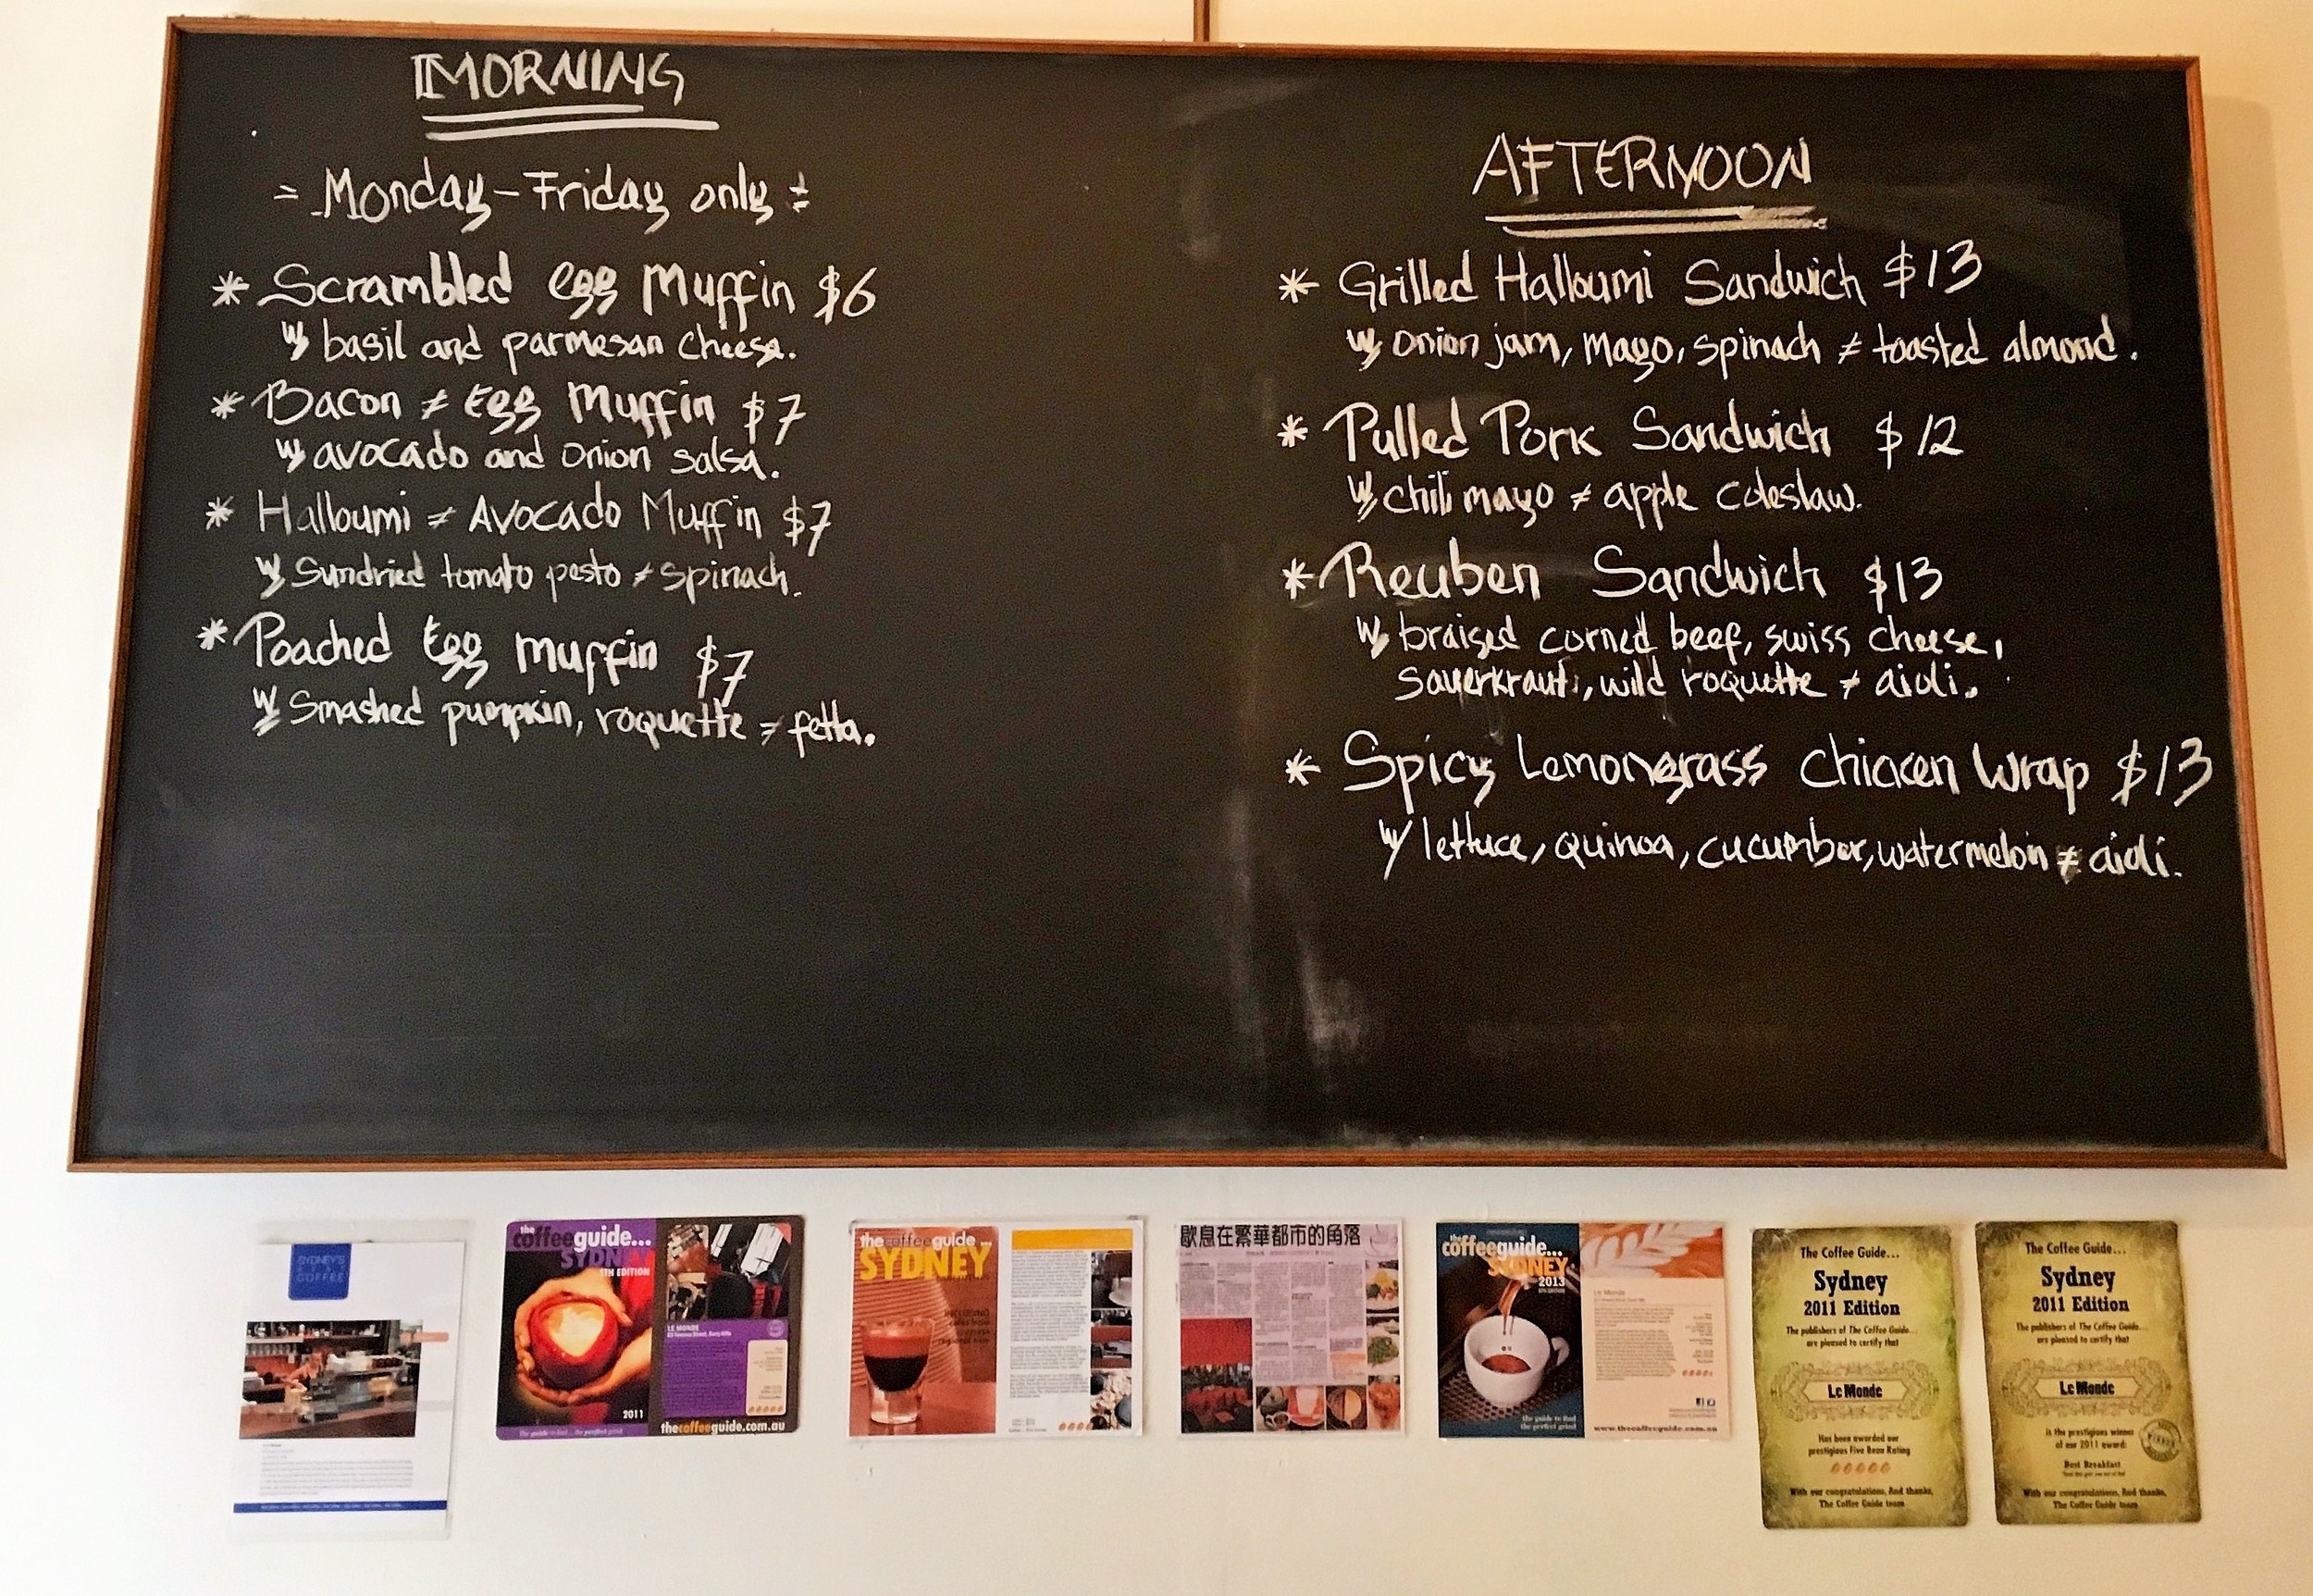 MORNING
= Monday-Friday only =
* Scrambled egg Muffin $6
w/ basil and parmesan cheese.
* Bacon & Egg Muffin $7
w/ avocado and onion salsa.
* Halloumi & Avocado Muffin $7
w/ Sundried tomato pesto & spinach.
* Poached Egg muffin $7
w/ Smashed pumpkin, roquette & fetta.
AFTERNOON
* Grilled Halloumi Sandwich $13
w/ onion jam, mayo, spinach & toasted almond.
* Pulled Pork Sandwich $12
w/ chili mayo & apple coleslaw.
* Reuben Sandwich $13
w/ braised corned beef, swiss cheese,
sauerkraut, wild roquette & aioli.
* Spicy Lemongrass Chicken Wrap $13
w/ lettuce, quinoa, cucumber, watermelon & aioli.
SYDNEY'S
COFFEE
the
coffeeguide...
SYDNEY
5TH EDITION
2011
The guide to find... the perfect grind
LE MONDE
thecoffeeguide.com.au
thecoffeeguide...
SYDNEY
歇息在繁華都市的角落
the
coffeeguide...
SYDNEY
2013
the guide to find
the perfect grind
Le Monde
www.thecoffeeguide.com.au
The Coffee Guide...
Sydney
2011 Edition
The publishers of The Coffee Guide...
are pleased to certify that
Le Monde
Has been awarded our
prestigious Five Bean Rating
With our congratulations, And thanks,
The Coffee Guide team
The Coffee Guide...
Sydney
2011 Edition
The publishers of The Coffee Guide...
are pleased to certify that
Le Monde
is the prestigious winner
of our 2011 award:
WINNER
Best Breakfast
With our congratulations, And thanks,
The Coffee Guide team